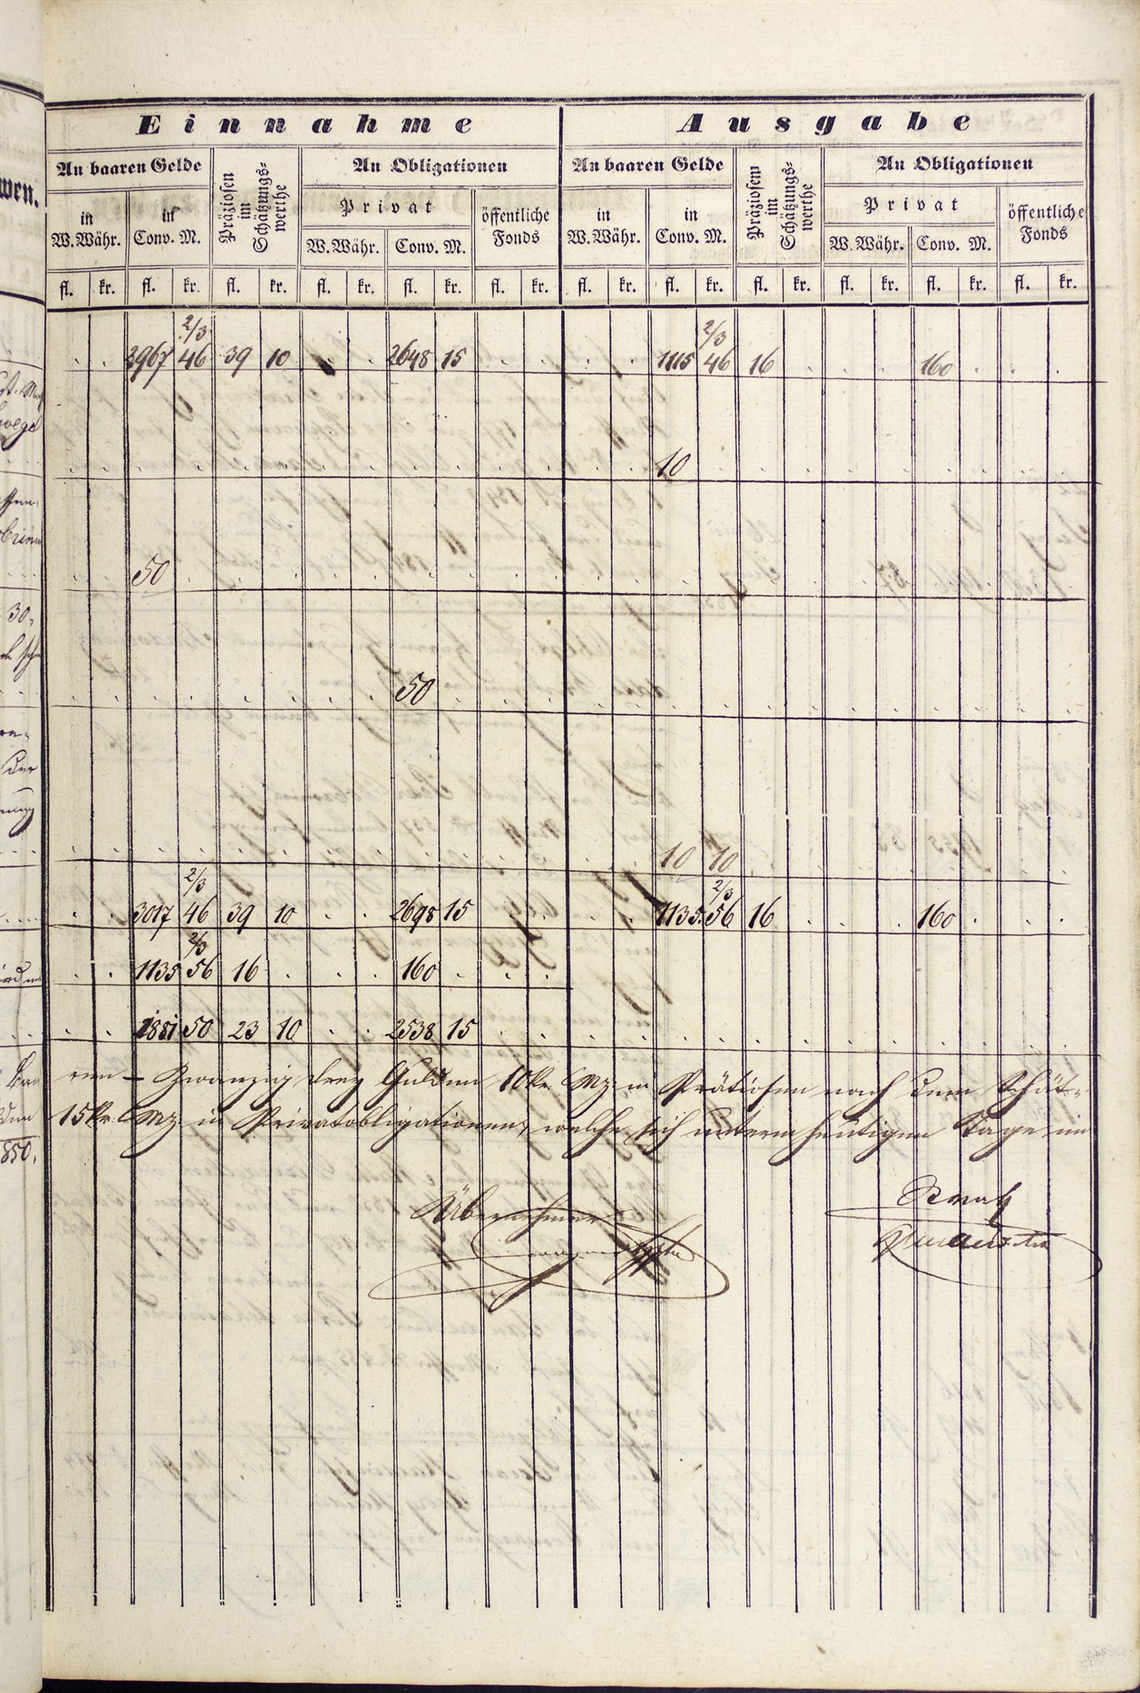 Einnahme Ausgabe
An baaren Gelde Präziosen im Schätzungs= werthe An Obligationen An baaren Gelde Präziosem im Schätzungs= werthe An Obligationen
wen.
Privat öffentliche Fonds Privat öffentliche Fonds
in W. Währ. in Conv. M. W. Währ. Conv. M. in W. Währ. in Conv. M. W. Währ. Conv. M.
fl. kr. fl. kr. fl. kr. fl. kr. fl. kr. fl. kr. fl. kr. fl. kr. fl. kr. fl. kr. fl. kr. fl. kr.
2/3 2/3
2967 46 39 10 2648 15 1115 46 16 160
10
50
30
50
10 10
2/3 2/3
3017 46 39 10 2698 15 1135 56 16 160
2/3
1135 56 16 160
1881 50 23 10 2538 15
ren – Zwanzig drey Gulden 10 kr CMz in Prätiosen nach dem Schät=
15 kr CMz in Privatobligationen, welche sich unterm heutigen Tage im
850.
Übernehmer